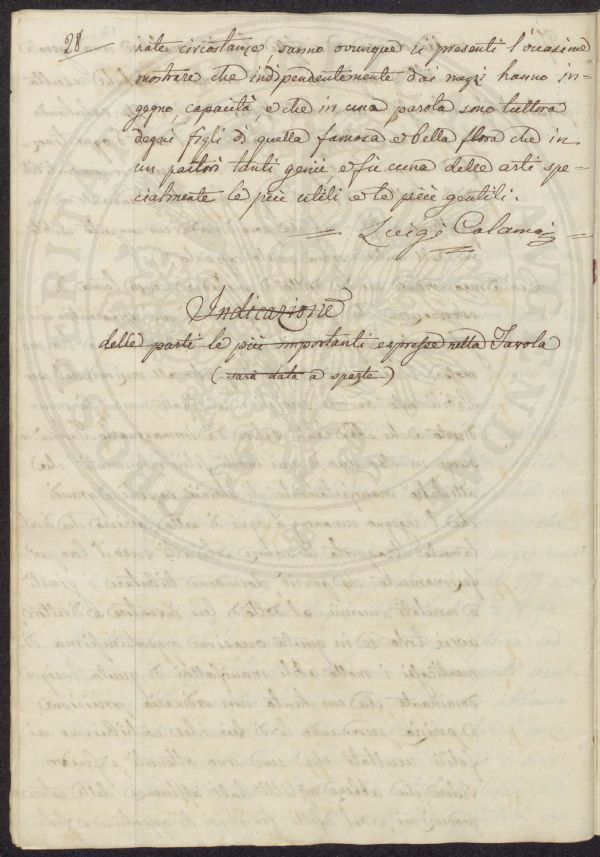 28
rate circostanze, sanno ovunque si presenti l'occasione
mostrare che indipendentemente dai mezzi hanno in-
gegno, capacità, e che in una parola sono tuttora
degni figli di quella famosa e bella flora che in
un partorì tanti genii, e fu cuna delle arti spe-
cialmente le più utili e le più gentili.
Luigi Calamai
Indicazione
delle parti le più importanti espresse nella Tavola
(sarà data a parte)